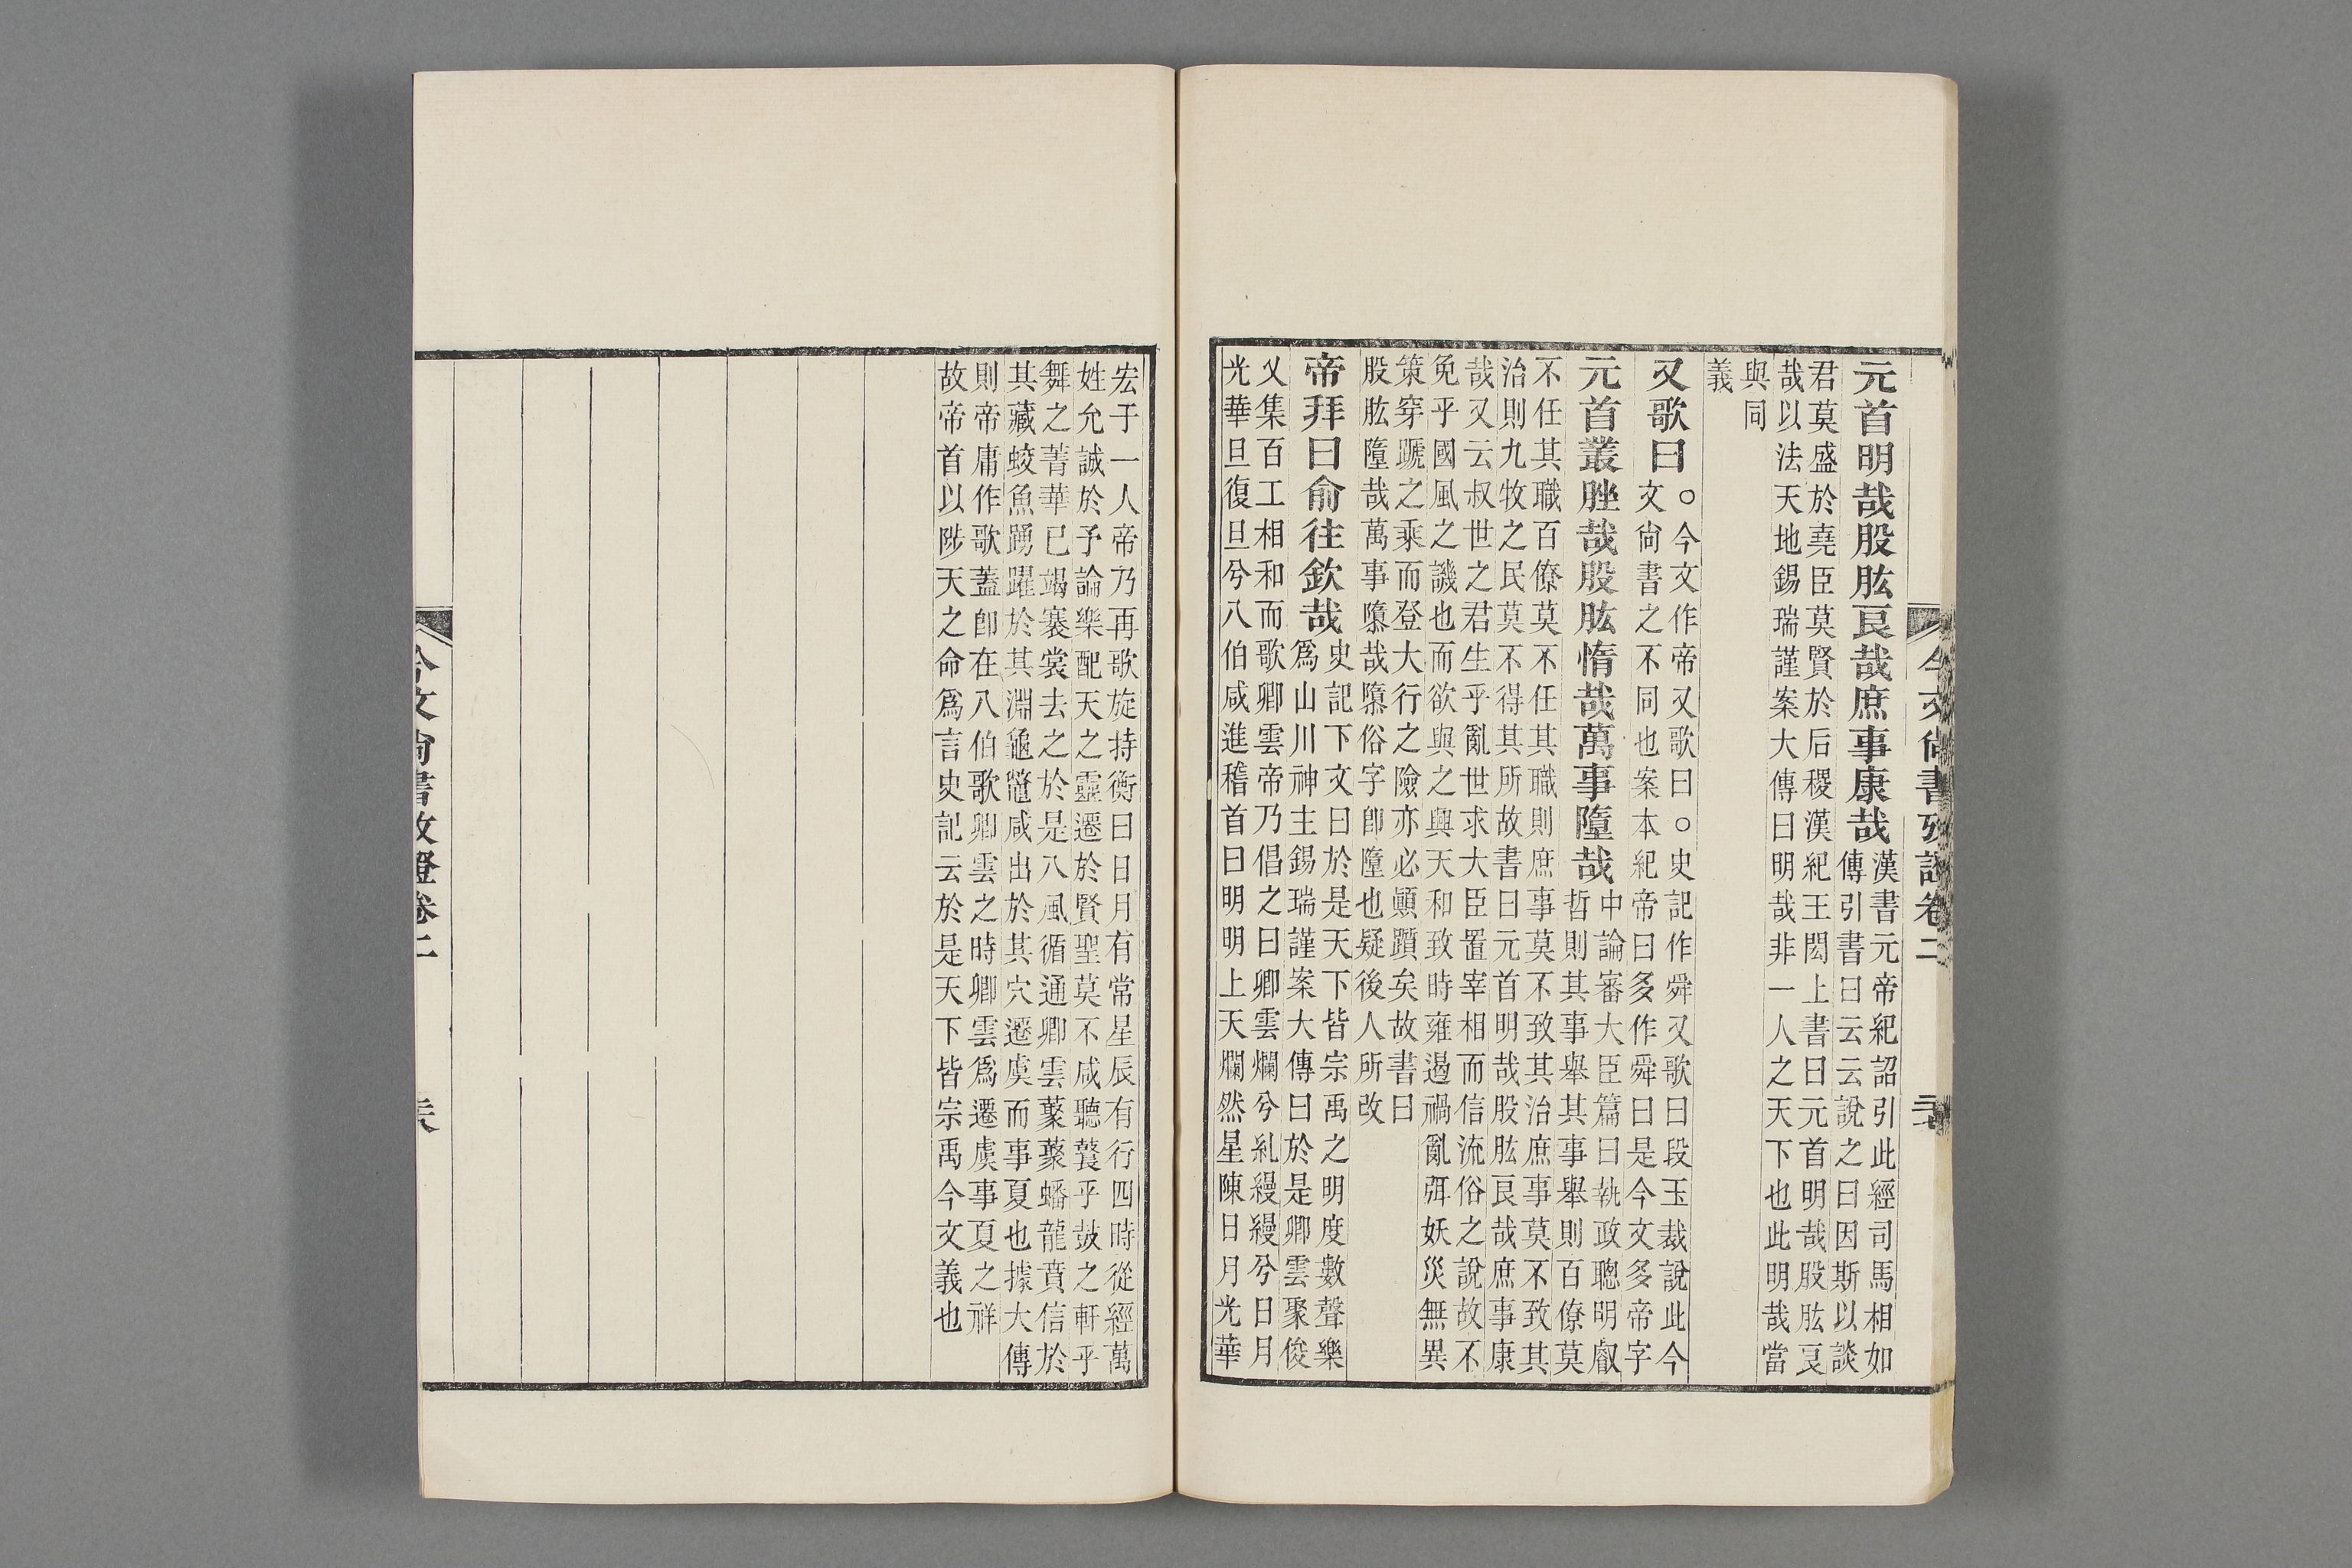 今文尚書攷證卷二
元首明哉股肱良哉庶事康哉漢書元帝紀詔引此經司馬相如
傳引書曰云云說之曰因斯以談
君莫盛於堯臣莫賢於后稷漢紀王閎上書曰元首明哉股肱良
哉以法天地錫瑞謹案大傳曰明哉非一人之天下也此明哉當
與同
義
又歌曰○今文作帝又歌曰○史記作舜又歌曰段玉裁說此今
文尙書之不同也案本紀帝曰多作舜曰是今文多帝字
元首叢脞哉股肱惰哉萬事墮哉中論審大臣篇曰執政聰明叡
哲則其事舉其事舉則百僚莫
不任其職百僚莫不任其職則庶事莫不致其治庶事莫不致其
治則九牧之民莫不得其所故書曰元首明哉股肱良哉庶事康
哉又云叔世之君生乎亂世求大臣置宰相而信流俗之說故不
免乎國風之譏也而欲與之興天和致時雍遏禍亂弭妖災無異
策穿蹏之乘而登大行之險亦必顚躓矣故書曰
股肱墮哉萬事隳哉隳俗字卽墮也疑後人所改
帝拜曰俞往欽哉史記下文曰於是天下皆宗禹之明度數聲樂
爲山川神主錫瑞謹案大傳曰於是卿雲聚俊
乂集百工相和而歌卿雲帝乃倡之曰卿雲爛兮糺縵縵兮日月
光華旦復旦兮八伯咸進稽首曰明明上天爛然星陳日月光華
宏于一人帝乃再歌旋持衡曰日月有常星辰有行四時從經萬
姓允誠於予論樂配天之靈遷於賢聖莫不咸聽鼚乎鼓之軒乎
舞之菁華已竭褰裳去之於是八風循通卿雲藂藂蟠龍賁信於
其藏蛟魚踴躍於其淵龜鼈咸出於其穴遷虞而事夏也據大傳
則帝庸作歌蓋卽在八伯歌卿雲之時卿雲爲遷虞事夏之祥
故帝首以陟天之命爲言史記云於是天下皆宗禹今文義也
今文尙書攷證卷二